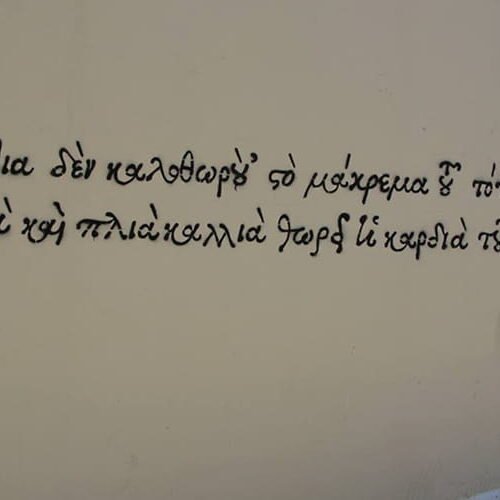 ια δὲν καλοθωροὺ' στὸ μάκρεμα τοῦ τό
ὰ καὶ πλιὰ καλλιὰ θωρεῖ ἡ καρδιὰ τ